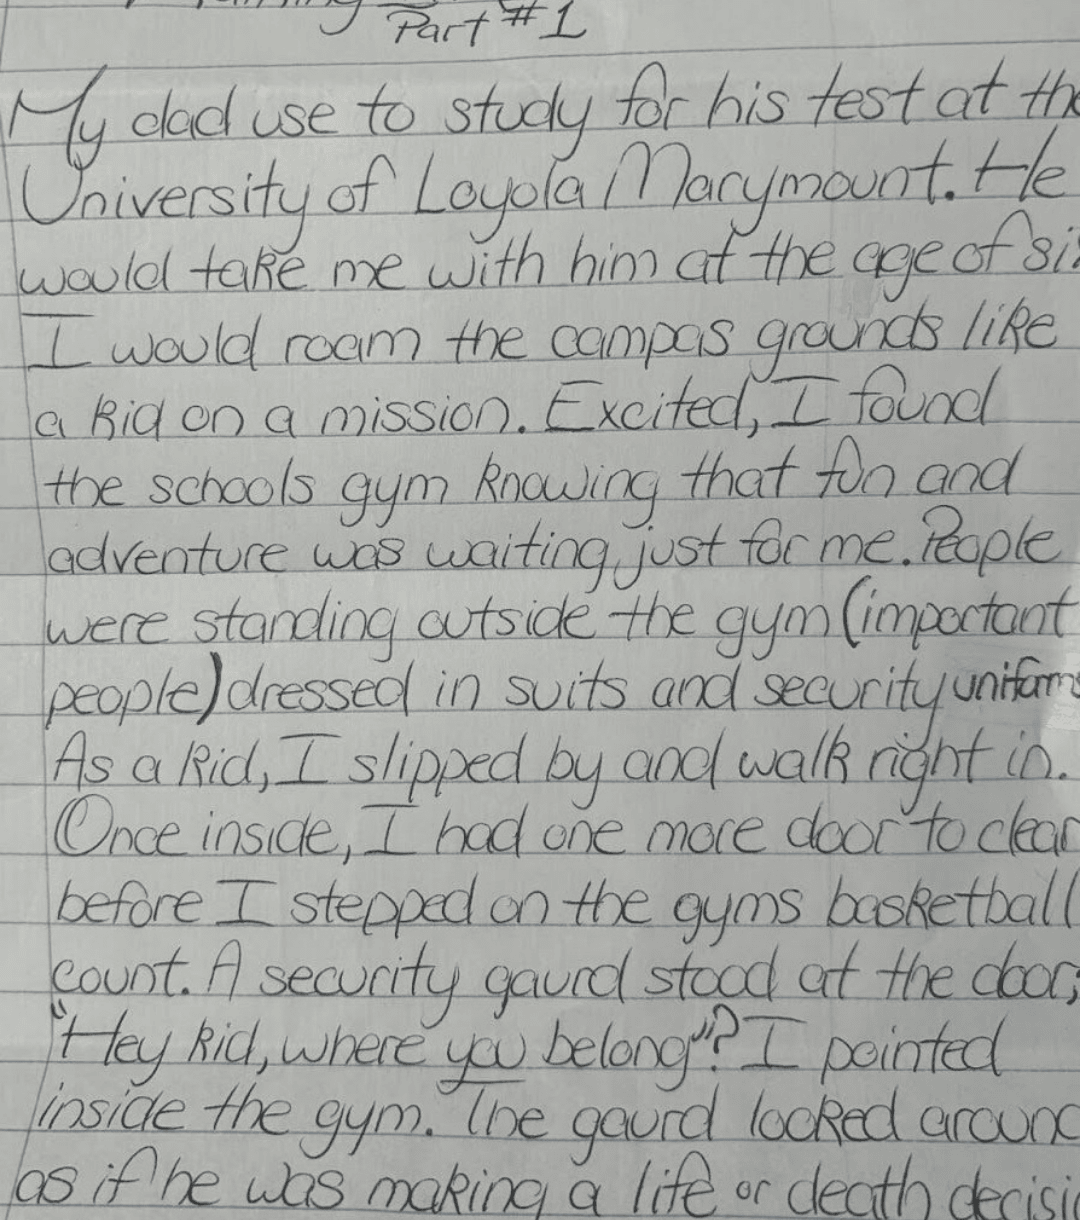 Part #1
My dad use to study for his test at the
University of Loyola Marymount. He
would take me with him at the age of six
I would roam the campas grounds like
a kid on a mission. Excited, I found
the schools gym knowing that fun and
adventure was waiting just for me. People
were standing outside the gym (important
people) dressed in suits and security uniforms
As a kid, I slipped by and walk right in.
Once inside, I had one more door to clear
before I stepped on the gyms basketball
count. A security gaurd stood at the door;
"Hey kid, where you belong"? I pointed
inside the gym. The gaurd looked around
as if he was making a life or death decisi